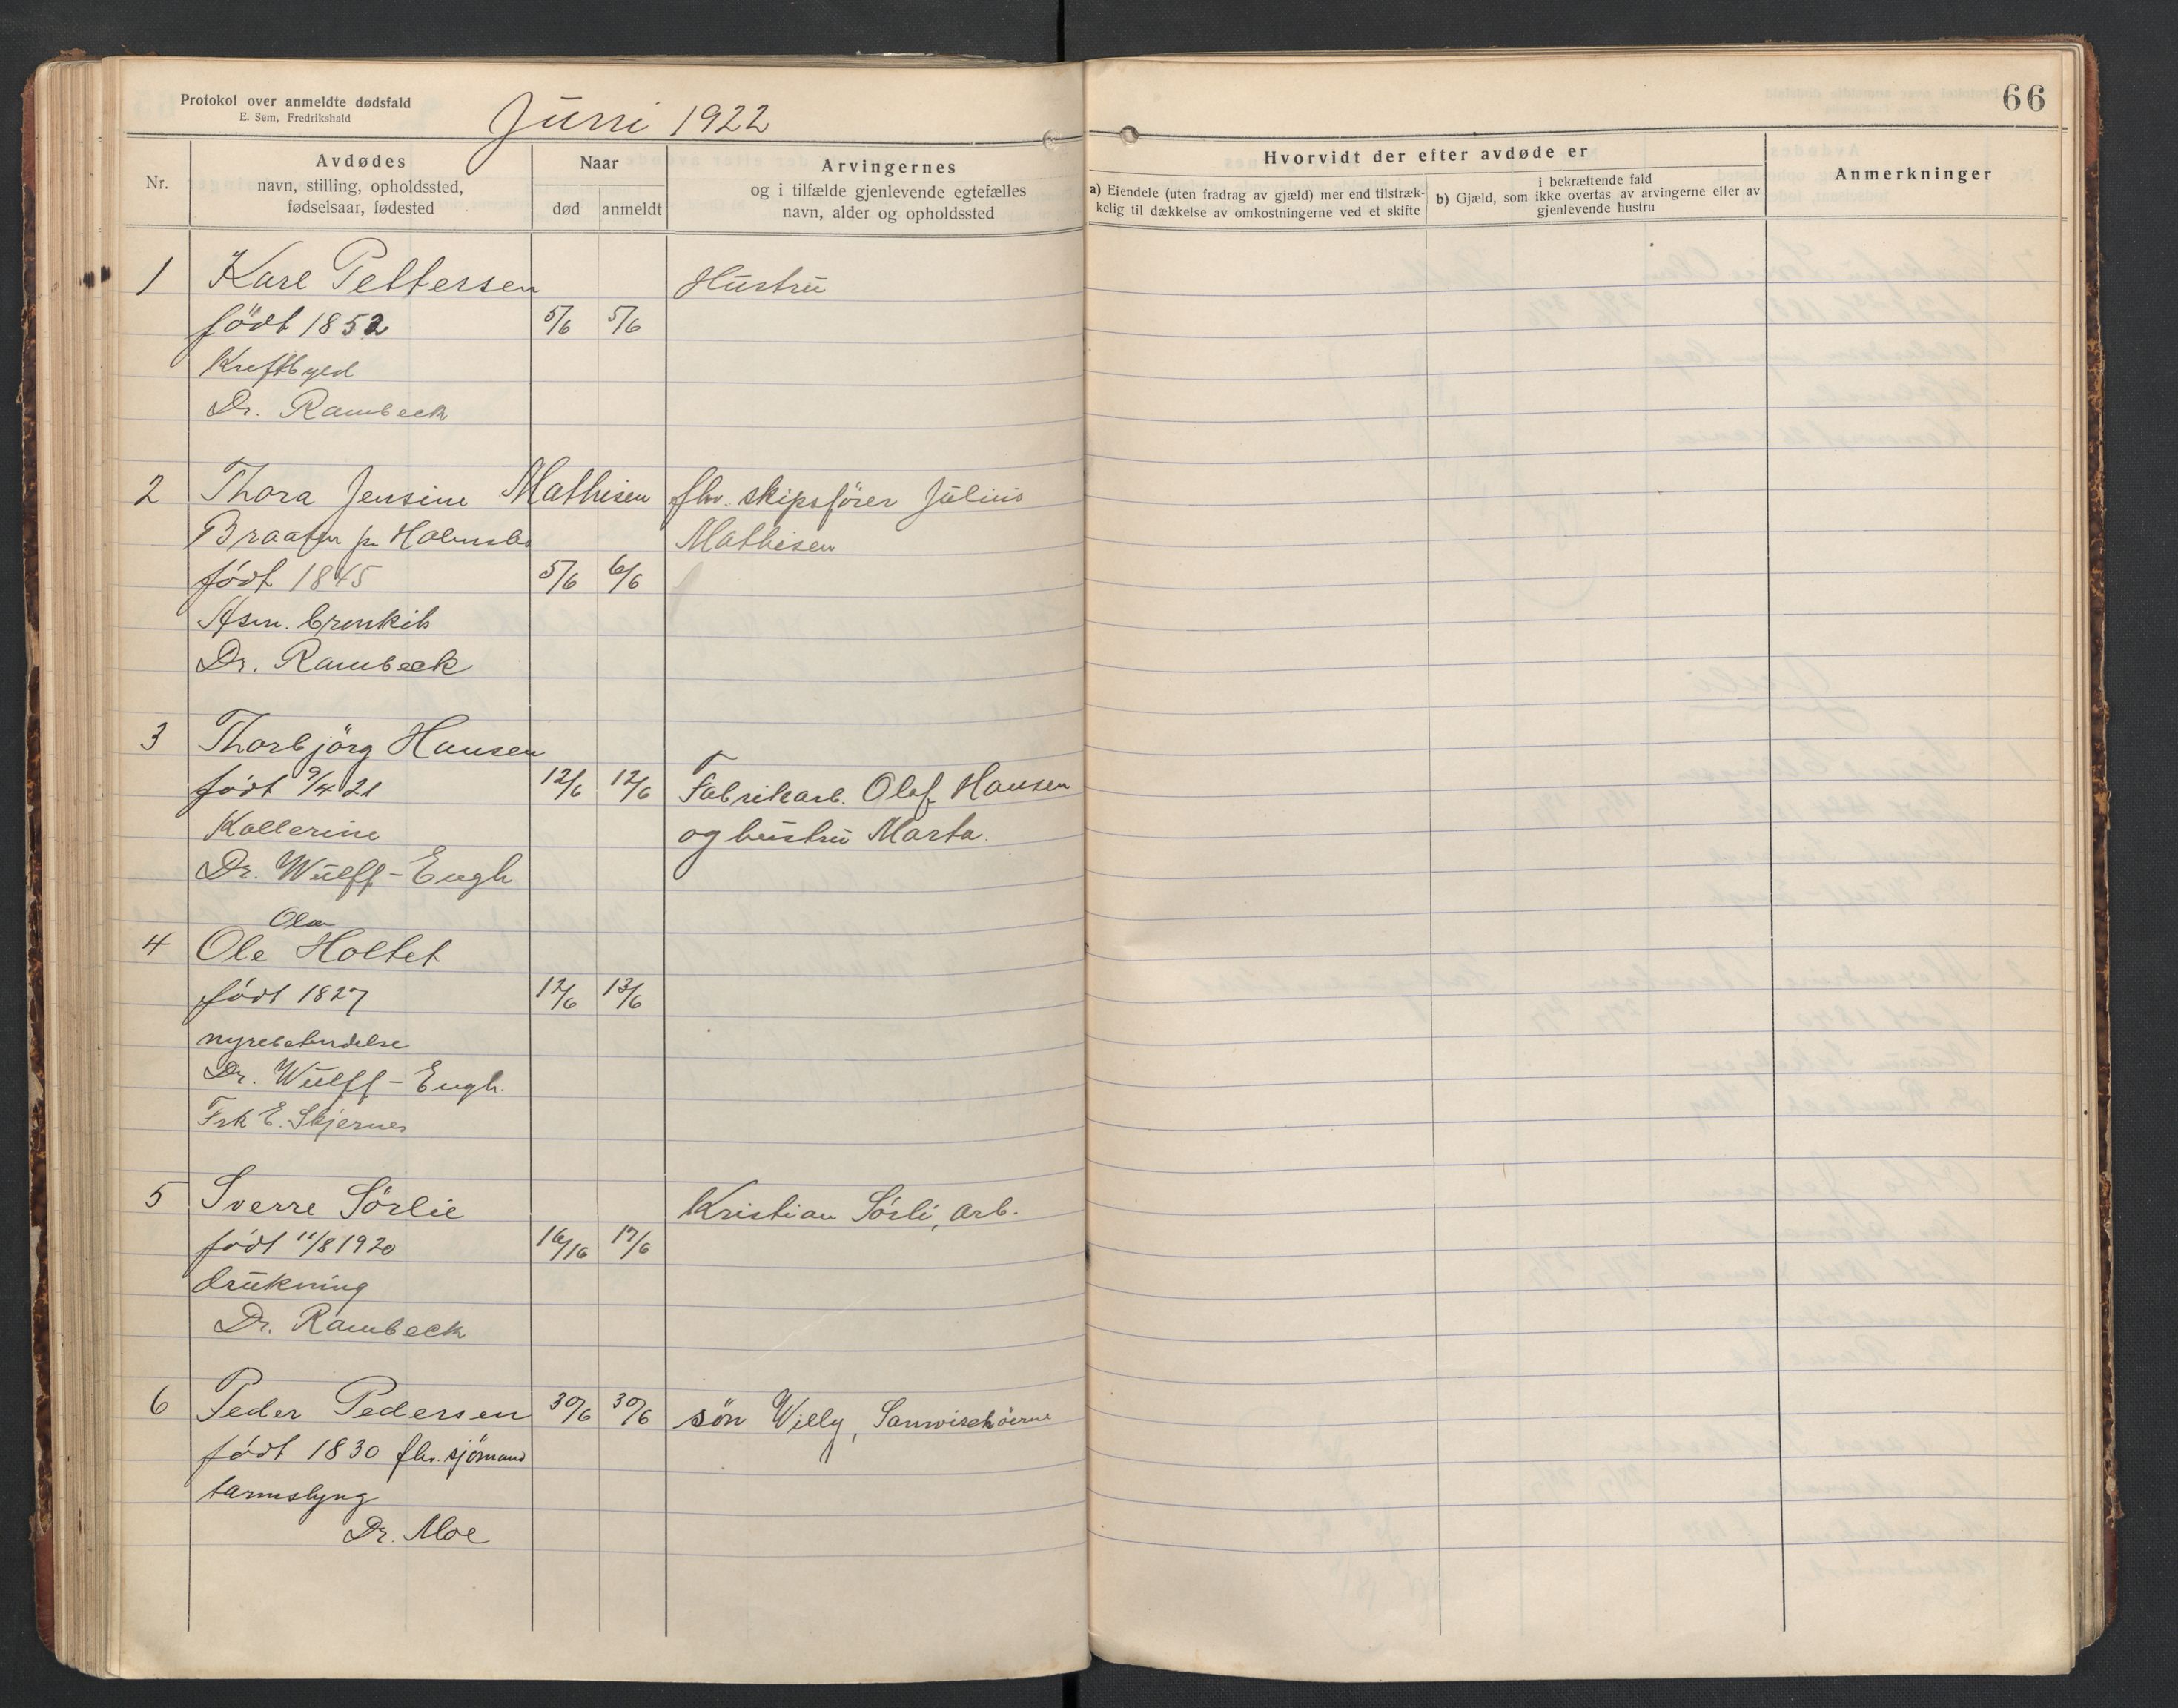 Protokol over anmeldte dødsfald
E. Sem, Fredrikshald
Juni 1922
66
Nr.
Avdødes
navn, stilling, opholdssted,
fødselsaar, fødested
Naar
død
anmeldt
Arvingernes
og i tilfælde gjenlevende egtefælles
navn, alder og opholdssted
Hvorvidt der efter avdøde er
a) Eiendele (uten fradrag av gjæld) mer end tilstræk-
kelig til dækkelse av omkostningerne ved et skifte
i bekræftende fald
b) Gjæld, som ikke overtas av arvingerne eller av
gjenlevende hustru
Anmerkninger
1 Karl Pettersen Hustru
født 1852 5/6 5/6
Kreftbyld
Dr. Rambeck
2 Thora Jensine Mathisen fhv. skipsfører Julius
Braaten pr Holmsbo Mathisen
født 1845 5/6 6/6
Asm. bronkit
Dr. Rambeck
3 Thorbjörg Hansen
født 9/4 21 12/6 12/6 Fabrikarb. Olaf Hansen
Kollerine og hustru Marta.
Dr. Wulff-Engh
Olsen
4 Ole Holtet
født 1827 12/6 13/6
nyrebetendelse
Dr. Wulff-Engh.
Frk E. Skjernes
5 Sverre Sörlie Kristian Sörli, arb.
født 11/8 1920 16/16 17/6
drukning
Dr. Rambeck
6 Peder Pedersen 30/6 30/6 søn Willy,
født 1830 fhv. sjömand
tarmslyng
Dr. Moe